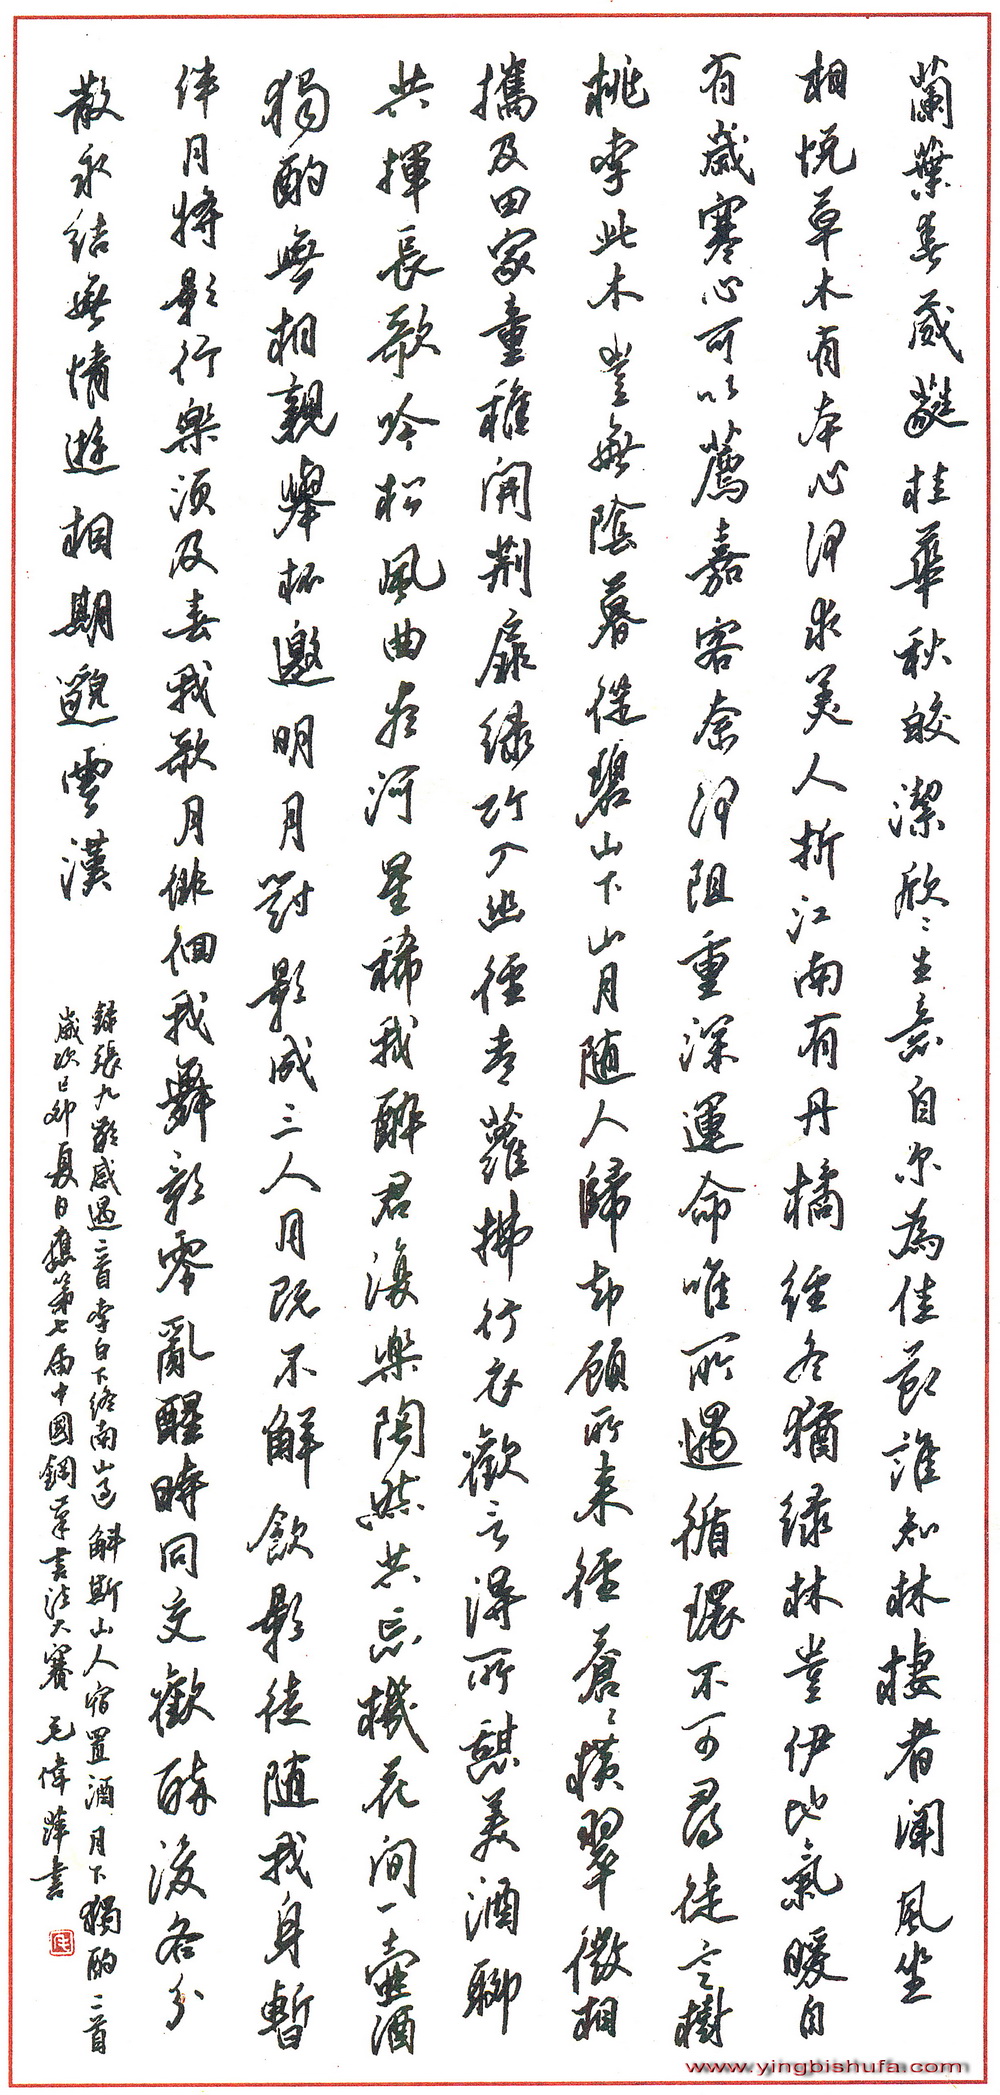 蘭葉春葳蕤桂華秋皎潔欣〻生意自尔為佳節誰知林棲者聞風坐
相悦草木有本心何求美人折江南有丹橘經冬猶緑林豈伊地氣暖自
有歲寒心可以薦嘉客奈何阻重深運命唯所遇循環不可尋徒言樹
桃李此木豈無陰暮從碧山下山月随人歸却顧所来徑蒼〻横翠微相
攜及田家童稚開荆扉緑竹入幽徑青蘿拂行衣歡言得所憩美酒聊
共揮長歌吟松風曲盡河星稀我醉君復樂陶然共忘機花间一壺酒
獨酌無相親舉杯邀明月對影成三人月既不解飲影徒随我身暫
伴月將影行樂須及春我歌月徘徊我舞影零亂醒時同交歡醉後各分
散永結無情遊相期邈雲漢
録張九齡感遇二首李白下终南山過斛斯山人宿置酒月下獨酌二首
歲次己卯夏日應第七届中國鋼筆書法大賽 毛偉萍書
www.yingbishufa.com